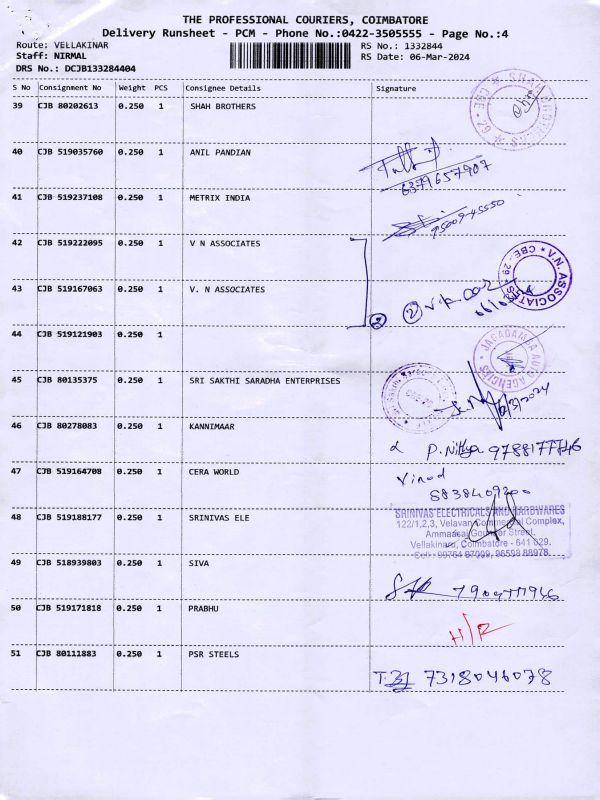 THE PROFESSIONAL COURIERS, COIMBATORE
Delivery Runsheet - PCM - Phone No.:0422-3505555 - Page No.:4
Route: VELLAKINAR RS No.: 1332844
Staff: NIRMAL RS Date: 06-Mar-2024
DRS No.: DCJB133284404
S No Consignment No Weight PCS Consignee Details Signature
39 CJB 80202613 0.250 1 SHAH BROTHERS
40 CJB 519035760 0.250 1 ANIL PANDIAN
6379657907
41 CJB 519237108 0.250 1 METRIX INDIA
9500945550
42 CJB 519222095 0.250 1 V N ASSOCIATES
V.N. ASSOCIATES * CBE - 29 *
43 CJB 519167063 0.250 1 V. N ASSOCIATES
2 2
44 CJB 519121903 0.250 1
JAGADAMBA AUTO AGENCIES
45 CJB 80135375 0.250 1 SRI SAKTHI SARADHA ENTERPRISES
6/3/2024
46 CJB 80278083 0.250 1 KANNIMAAR
P. Nithya 9788177746
47 CJB 519164708 0.250 1 CERA WORLD
Vinod
8838409200
48 CJB 519188177 0.250 1 SRINIVAS ELE
SRINIVAS ELECTRICALS AND HARDWARES
122/1,2,3, Velavan Commercial Complex,
Ammasai Gounder Street,
Vellakinaru, Coimbatore - 641 029.
Cell : 99764 97009, 96598 88978
49 CJB 518939803 0.250 1 SIVA
50 CJB 519171818 0.250 1 PRABHU
H/R
51 CJB 80111883 0.250 1 PSR STEELS
7318046078